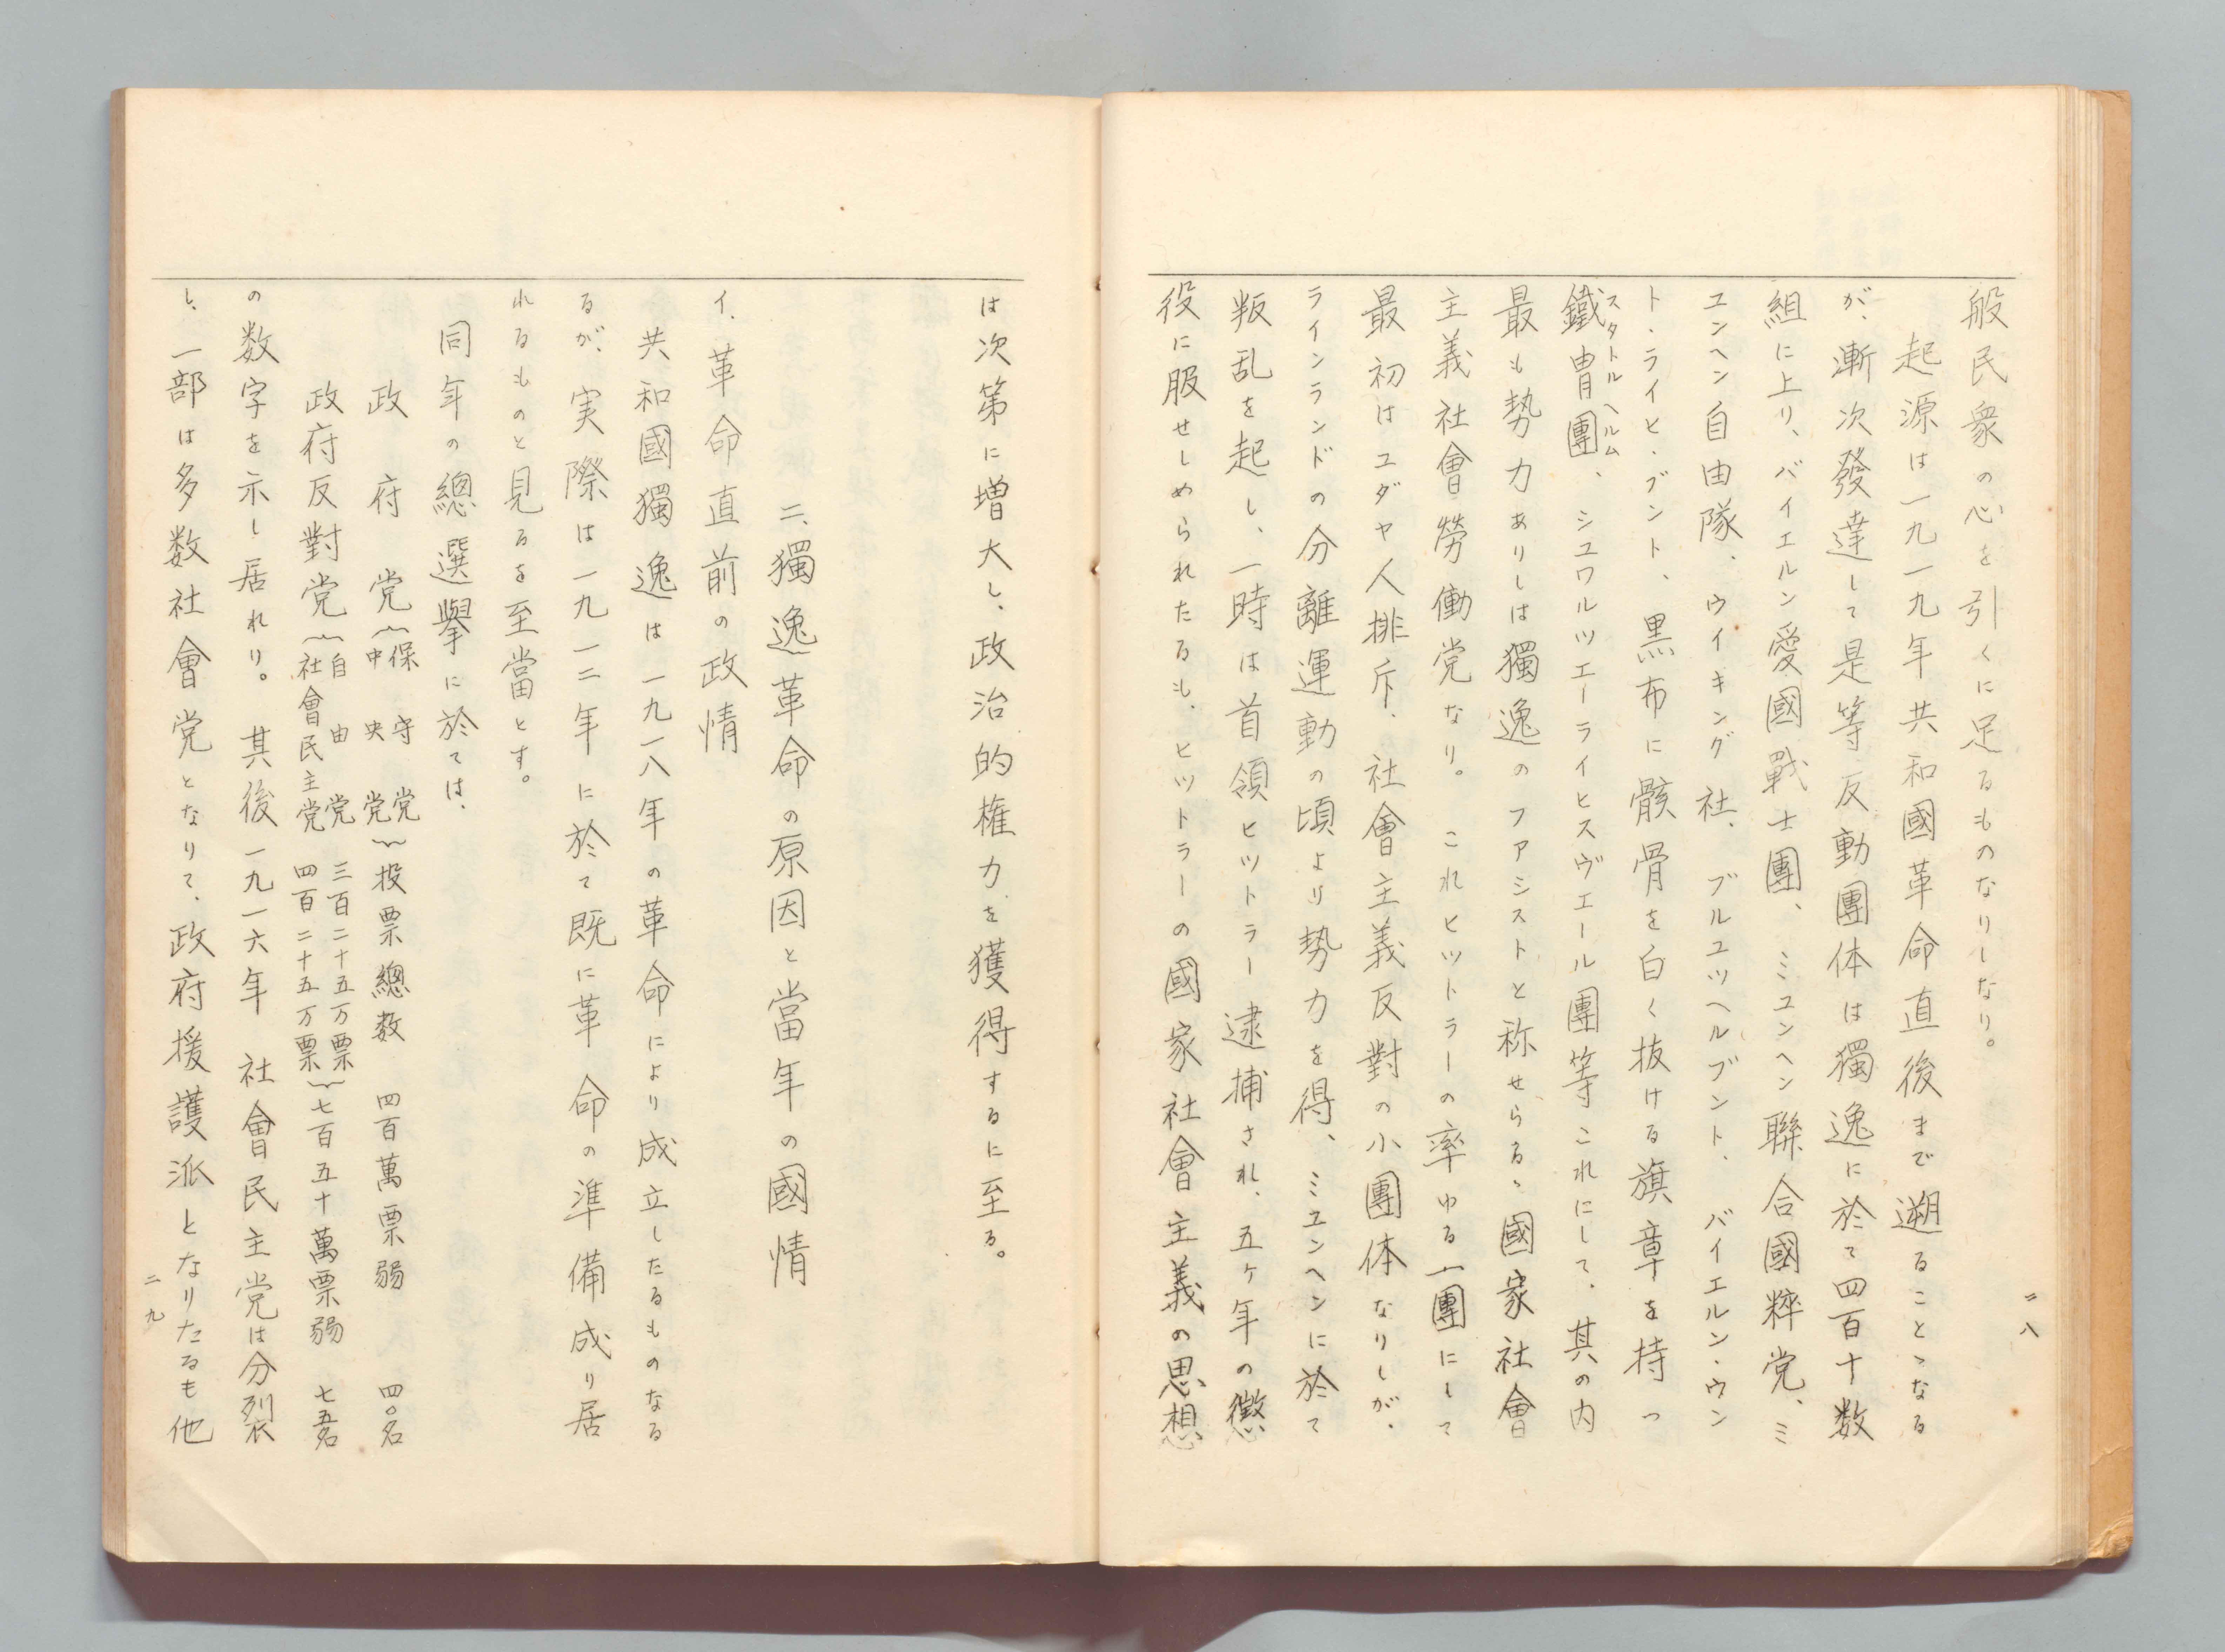 般民衆の心を引くに足るものなりしなり。
起源は一九一九年共和國革命直後まで遡ることゝなる
が、漸次發達して是等反動團体は獨逸に於て四百十数
組に上り、バイエルン愛國戰士團、ミユンヘン聯合國粹党、ミ
ユンヘン自由隊、ウイキング社、ブルユツヘルブント、バイエルン・ウン
ト・ライヒ・ブント、黒布に骸骨を白く抜ける旗章を持つ
鐵冑團、シユワルツエーライヒスヴエール團等これにして、其の内
スタトルヘルム
最も勢力ありしは獨逸のファシストと称せらるゝ國家社會
主義社會勞働党なり。これヒツトラーの率ゆる一團にして
最初はユダヤ人排斥、社會主義反對の小團体なりしが、
ラインランドの分離運動の頃より勢力を得、ミユンヘンに於て
叛乱を起し、一時は首領ヒツトラー逮捕され、五ヶ年の懲
役に服せしめられたるも、ヒツトラーの國家社會主義の思想
二八
は次第に増大し、政治的権力を獲得するに至る。
二、獨逸革命の原因と當年の國情
イ、革命直前の政情
共和國獨逸は一九一八年の革命により成立したるものなる
るが、実際は一九一二年に於て既に革命の準備成り居
れるものと見るを至當とす。
同年の總選擧に於ては、
政府党{保守党
中央党}投票總数 四百萬票弱 四〇名
政府反對党{自由党 三百二十五万票
社會民主党 四百二十五万票}七百五十萬票弱 七五名
の数字を示し居れり。其後一九一六年 社會民主党は分裂
し、一部は多数社會党となりて、政府援護派となりたるも他
二九